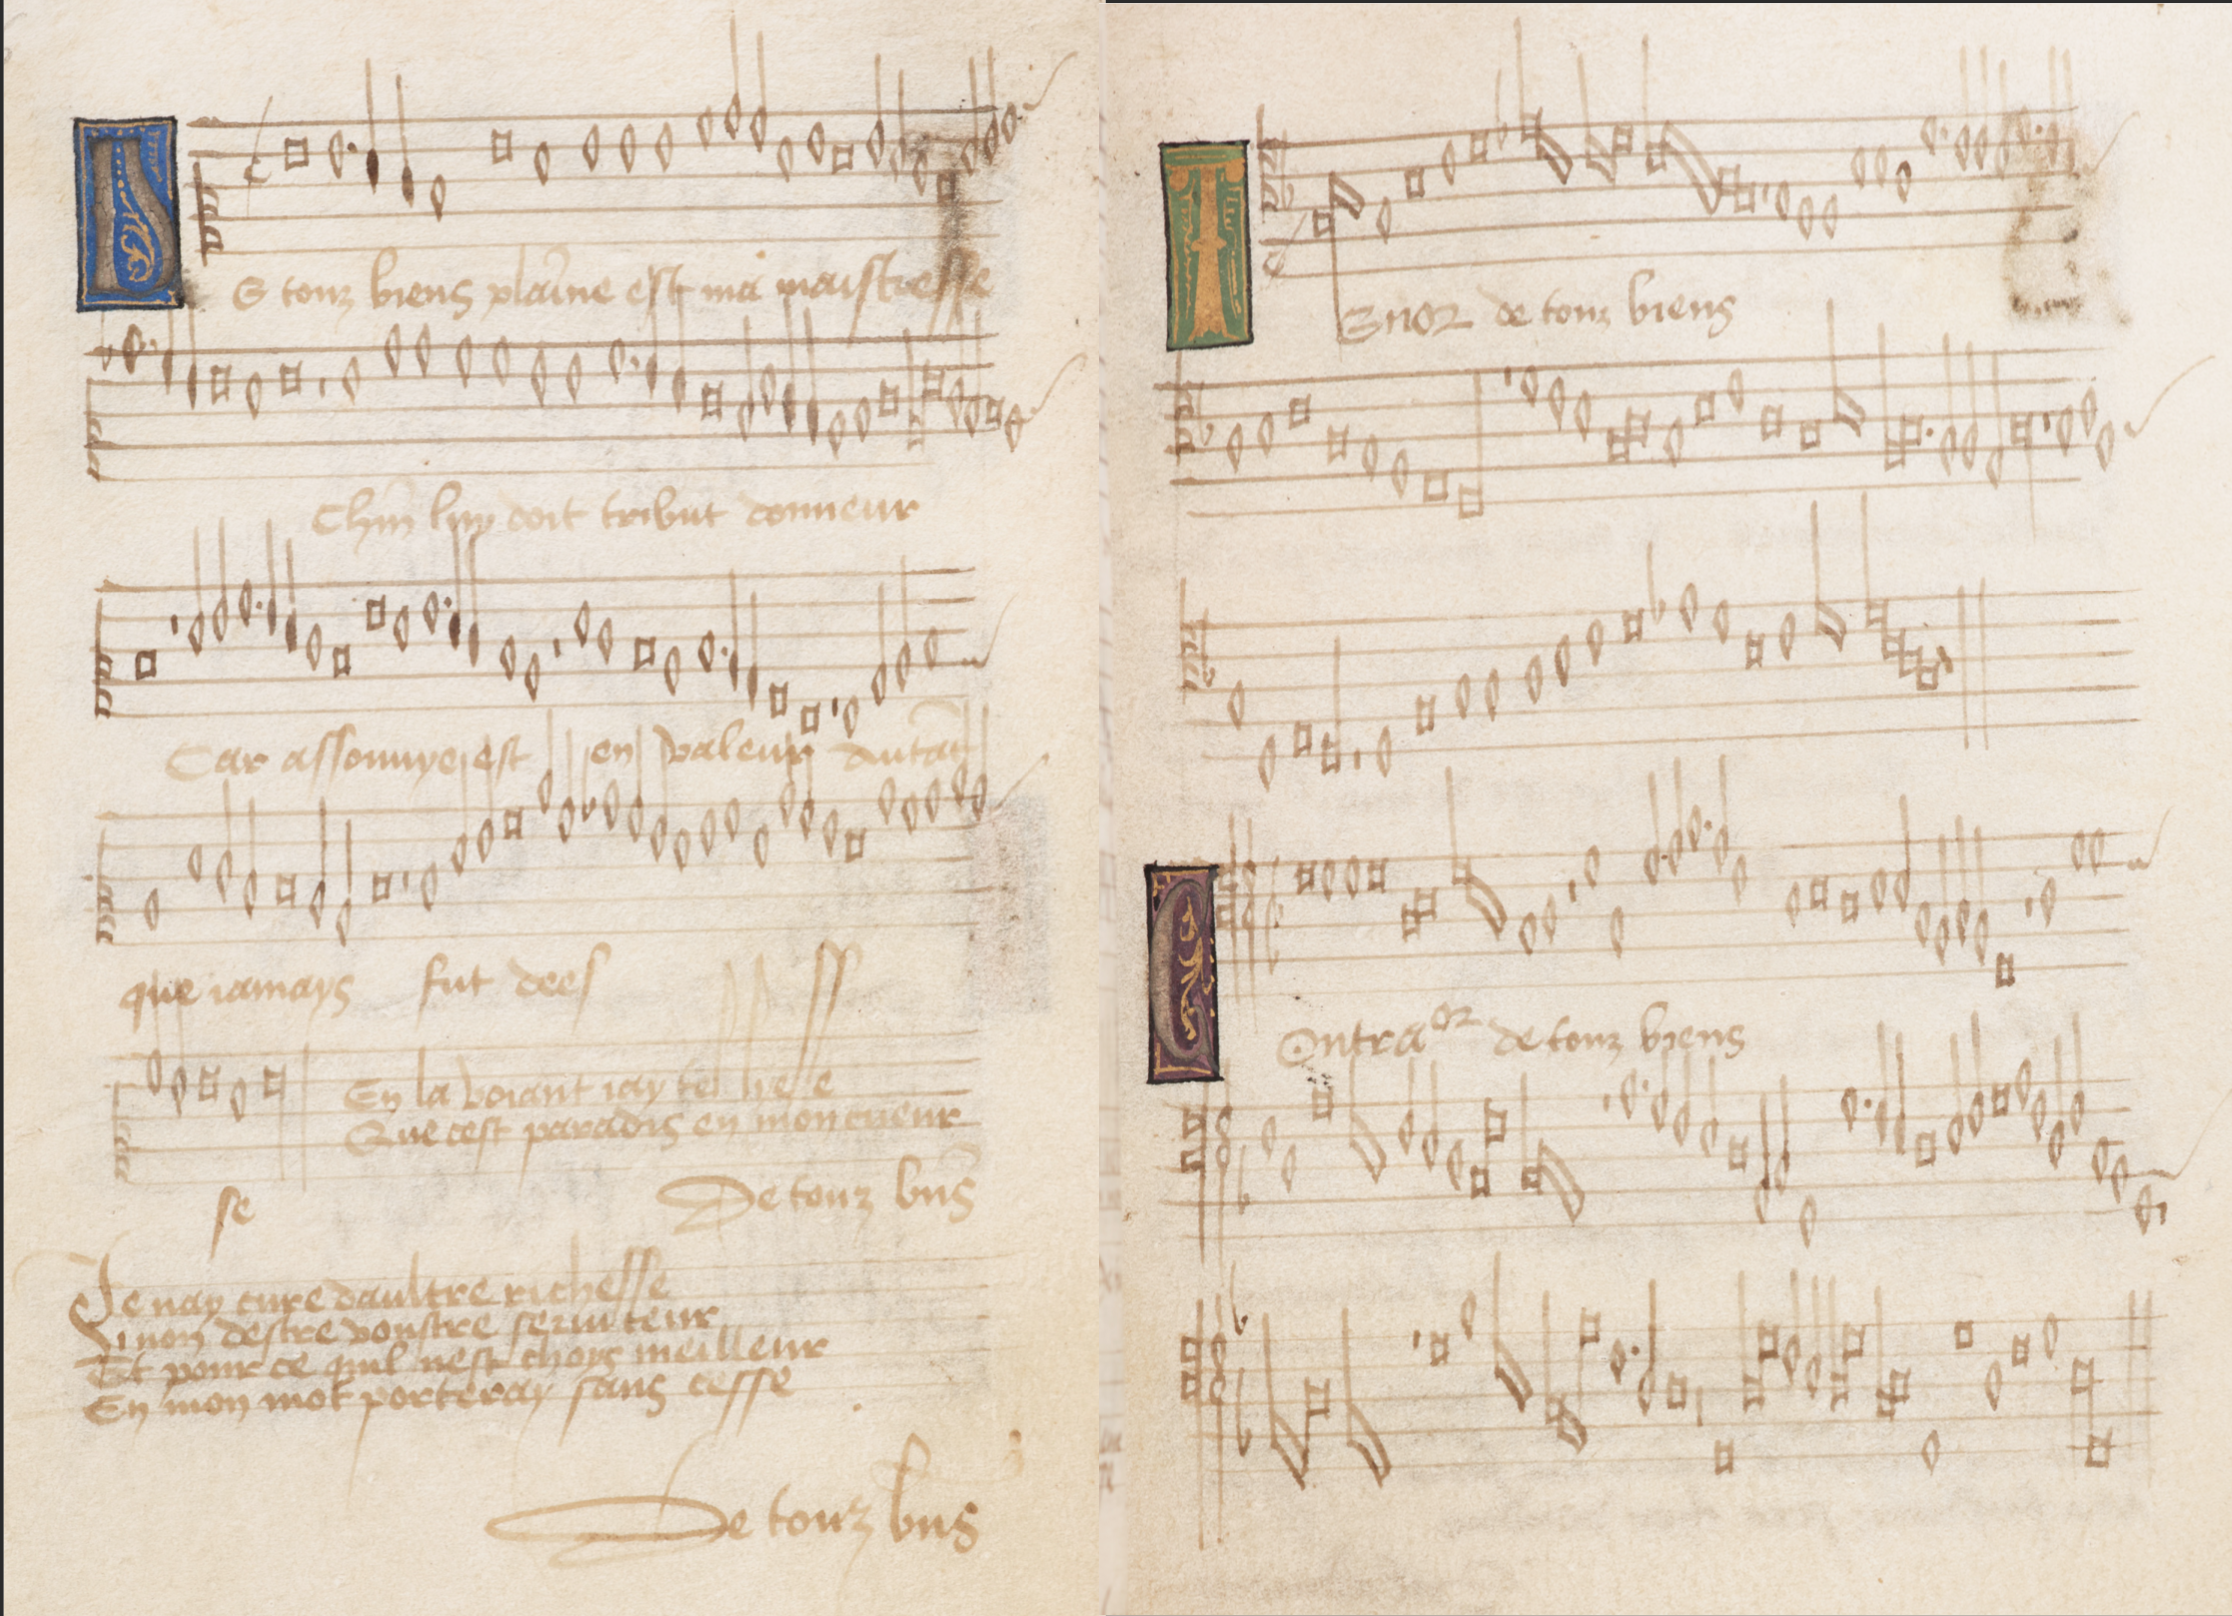 De touz biens plaine est ma maistresse
Chun luy doit tribut donneur
Car assouuye est en valeur autāt
que iamays fut dees
En la voiant iay tel lyesse
Que cest paradis en mon cueur
se
De touz bn̄s
Je nay cure daultre richesse
Sinon destre voustre seruiteur
Et pour ce quil nest choys meilleur
En mon mot porteray sans cesse
De touz bn̄s
Tenor de touz biens
Contraor de touz biens